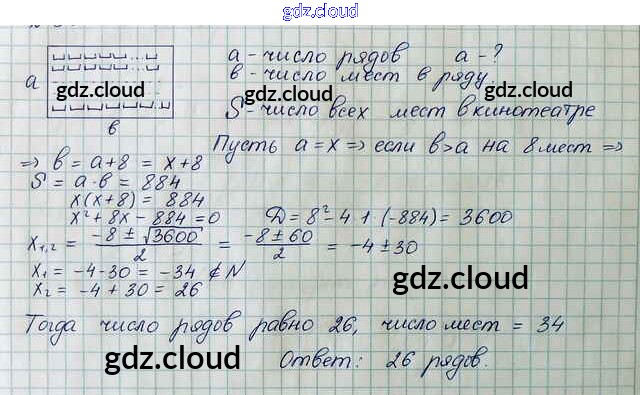 gdz.cloud
a - число рядов a - ?
в - число мест в ряду.
a
gdz.cloud
gdz.cloud
gdz.cloud
S - число всех мест в кинотеатре
в
Пусть a = x => если в > a на 8 мест =>
=> в = a + 8 = x + 8
S = a · в = 884
x(x + 8) = 884
x² + 8x - 884 = 0 D = 8² - 4 · 1 · (-884) = 3600
x₁,₂ = (-8 ± √3600)/2 = (-8 ± 60)/2 = -4 ± 30
x₁ = -4 - 30 = -34 ∉ N
x₂ = -4 + 30 = 26
gdz.cloud
Тогда число рядов равно 26, число мест = 34
gdz.cloud
Ответ: 26 рядов.